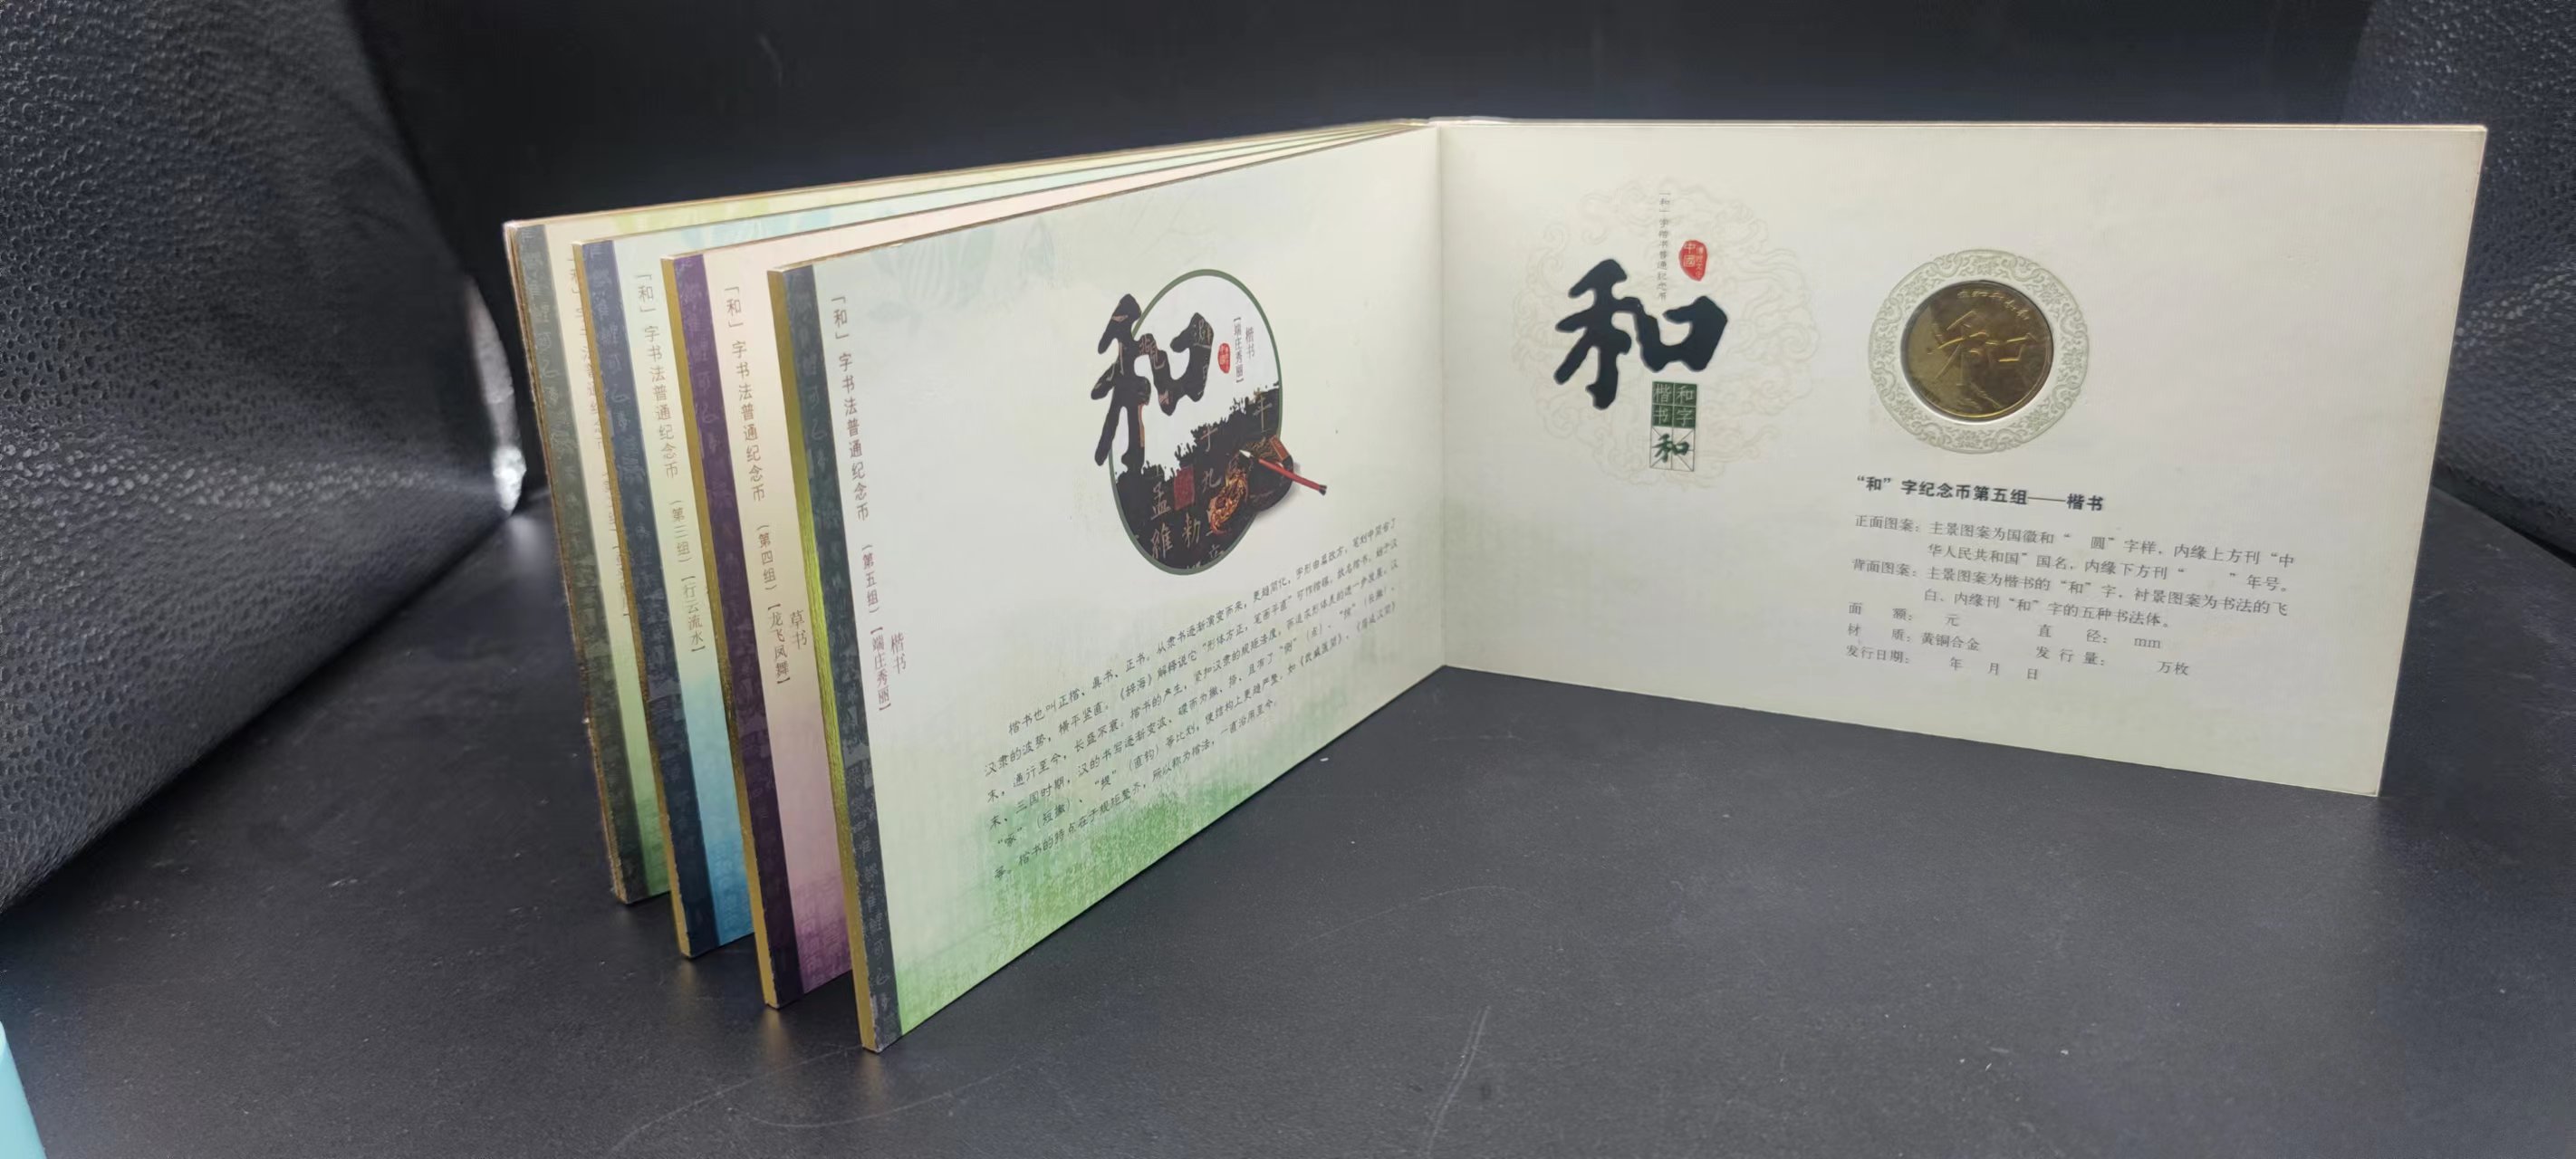 「和」字书法普通纪念币
「和」字书法普通纪念币
（第三组）
【行云流水】
「和」字书法普通纪念币
（第四组）
草书
【龙飞凤舞】
「和」字书法普通纪念币
（第五组）
楷书
【端庄秀丽】
和
楷书
【端庄秀丽】
楷书也叫正楷、真书、正书。从隶书逐渐演变而来，更趋简化，字形由扁改方，笔划中简省了
汉隶的波势，横平竖直。《辞海》解释说它“形体方正，笔画平直”可作楷模，故名楷书。始于汉
末，通行至今，长盛不衰。楷书的产生，紧扣汉隶的规矩法度，而追求形体美的进一步发展，汉
末、三国时期，汉的书写逐渐变波、磔而为撇、捺，且有了“侧”（点）、“掠”（长撇）、
“啄”（短撇）、“提”（直钩）等比划，使结构上更趋严整，如《武威医简》、《居延汉简》
等。楷书的特点在于规矩整齐，所以称为楷法，一直沿用至今。
「和」字楷书普通纪念币
中國
和
和字
楷书
和
和
“和”字纪念币第五组——楷书
正面图案：主景图案为国徽和“ 圆”字样，内缘上方刊“中
华人民共和国”国名，内缘下方刊“ ”年号。
背面图案：主景图案为楷书的“和”字，衬景图案为书法的飞
白、内缘刊“和”字的五种书法体。
面 额： 元 直 径： mm
材 质：黄铜合金 发 行 量： 万枚
发行日期： 年 月 日